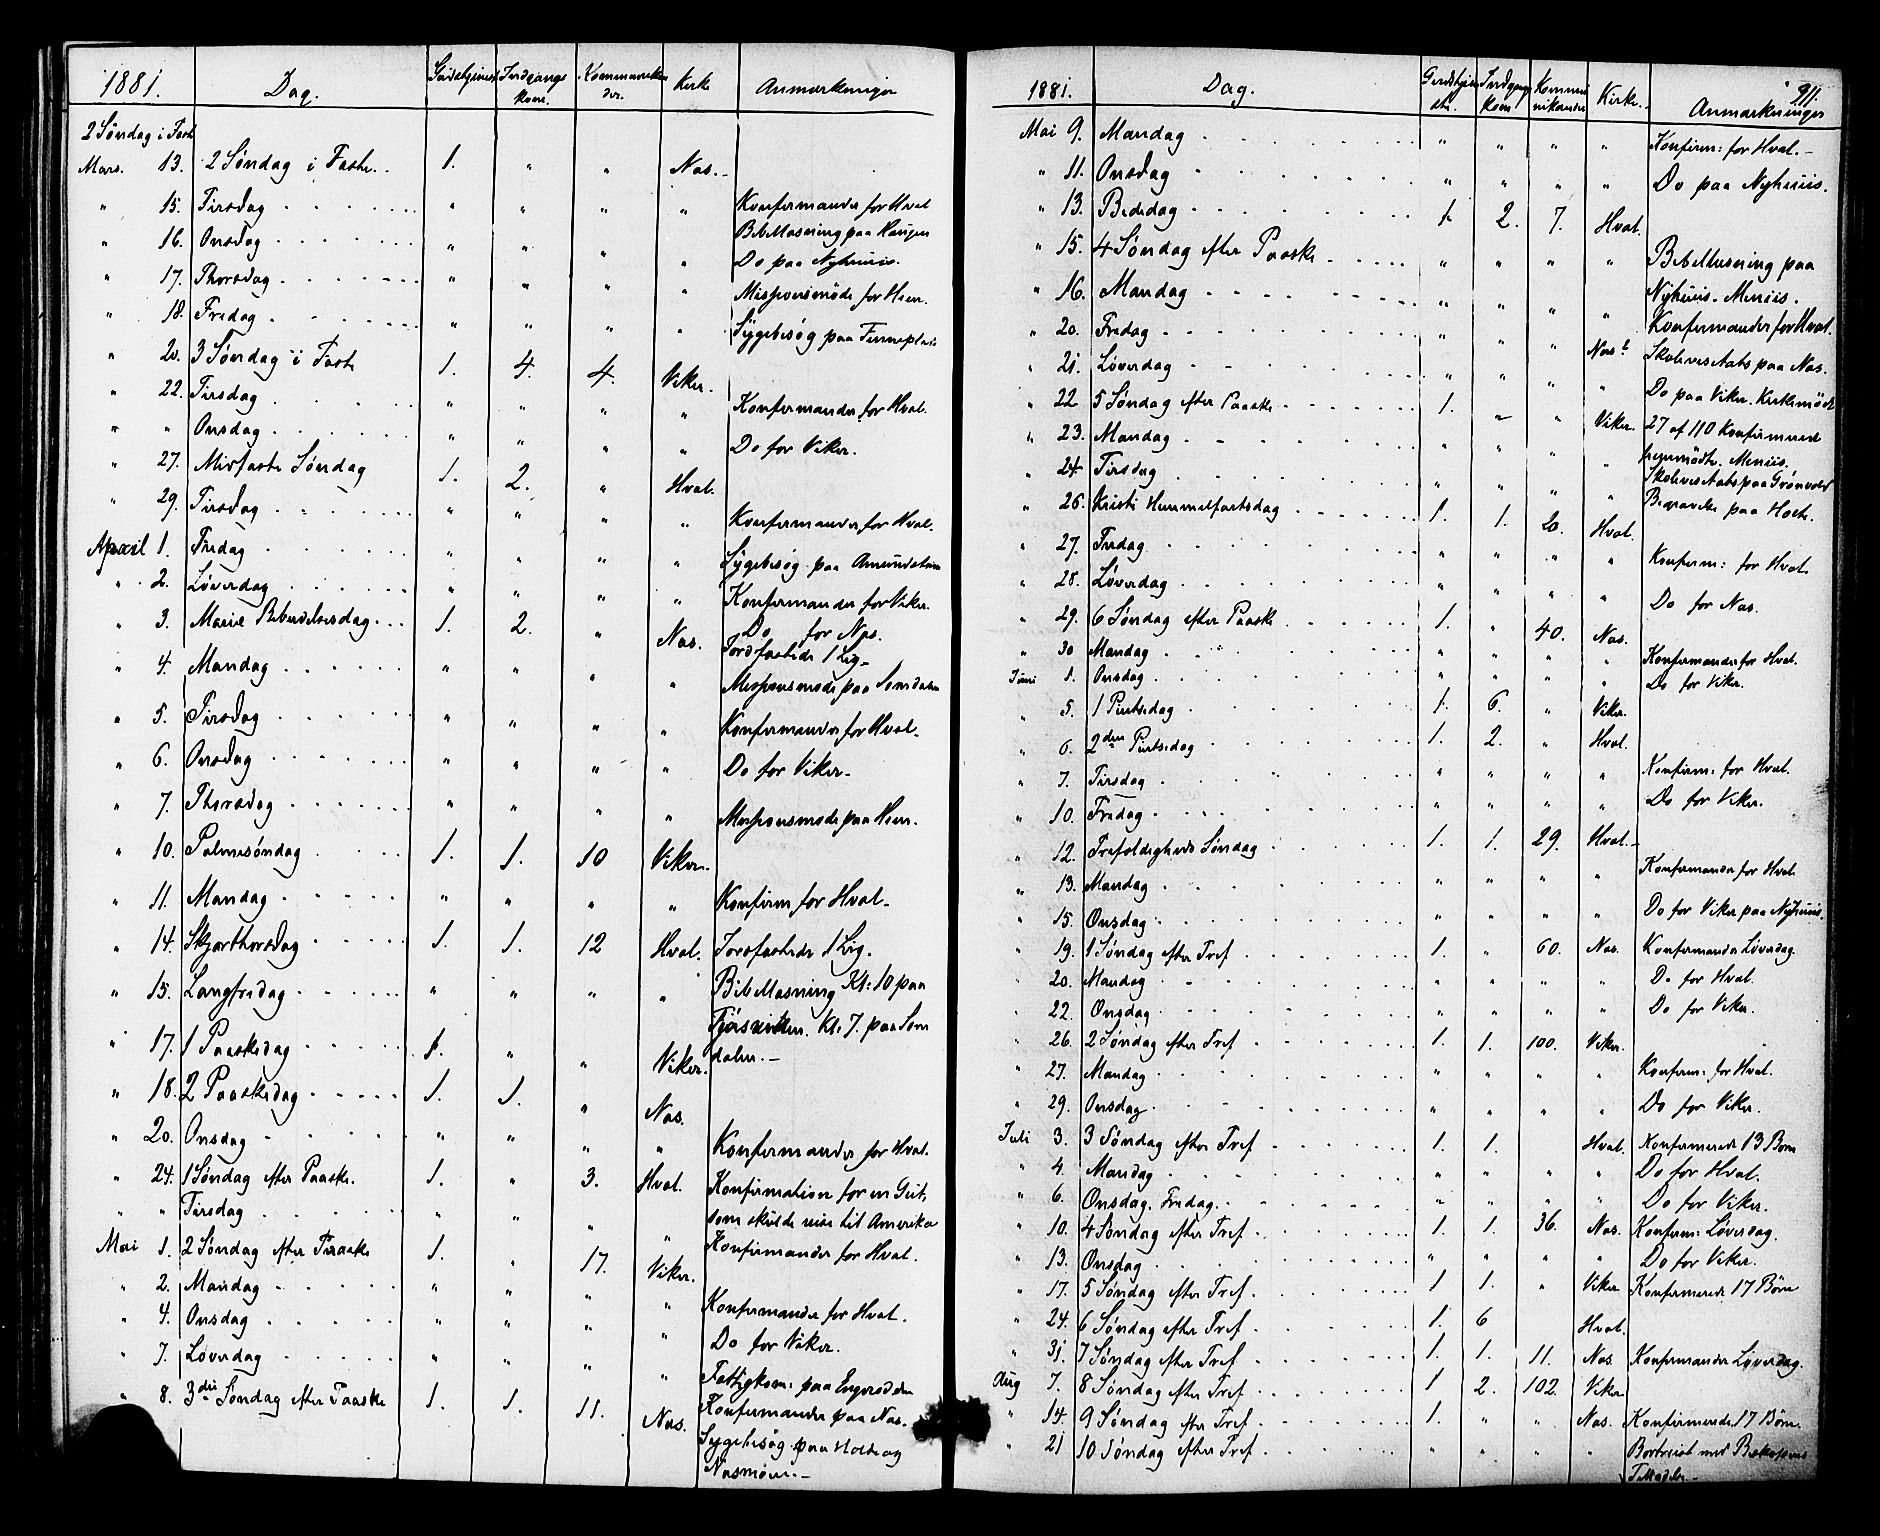 1881. Dag. Gudstjeneste Indgangs kone. Kommunikan der. Kirke Anmærkninger
2 Søndag i Fast
Mars. 13. 2 Søndag i Faste.. 1. " " Næs.
" 15. Tirsdag " " " " Konfirmander for Hval
" 16. Onsdag " " " " Bibellæsning paa Haugen
Do paa Nyhuus.
" 17. Thorsdag " " " " Missionsmøde for Heen.
" 18. Fredag " " " " Sygebesøg paa
" 20. 3 Søndag i Faste 1. 4. 4. Viker.
" 22. Tirsdag " " " " Konfirmander for Hval.
" " Onsdag " " " " Do for Viker.
" 27. Midfaste Søndag 1. 2. " Hval.
" 29. Tirsdag " " " " Konfirmander for Hval.
April 1. Fredag " " " " Sygebesøg paa
" 2. Løverdag " " " " Konfirmander for Viker.
" 3. Mariæ Bebudelsesdag 1. 2. " Næs. Do for Næs.
Jordfæstede 1 Lig
" 4. Mandag " " " " Missionsmøde paa Somdalen
" 5. Tirsdag " " " " Konfirmander for Hval.
" 6. Onsdag " " " " Do for Viker
" 7. Thorsdag " " " " Missionsmøde paa Heen.
" 10. Palmesøndag 1. 1. 10 Viker.
" 11. Mandag " " " " Konfirm for Hval
" 14. Skjærthorsdag 1. 1. 12 Hval. Jordfæstede 1 Lig.
" 15. Langfredag " " " " Bibellæsning Kl: 10 paa
Kl. 7. paa Som
dalen.
" 17. 1 Paaskedag 1. " " Viker.
" 18. 2 Paaskedag 1. 1. " Næs.
" 20. Onsdag " " " " Konfirmander for Hval.
" 24. 1 Søndag efter Paaske. 1. " 3. Hval. Konfirmation for en Gut,
som skulde reise til Amerika
" " Tirsdag " " " " Konfirmander for Hval.
Mai 1. 2 Søndag efter Paaske 1. " 17. Viker.
" 2. Mandag " " " " Konfirmander for Hval.
" 4. Onsdag " " " " Do for Viker.
" 7. Løverdag " " " " Fattigkom: paa
" 8. 3die Søndag efter Paaske 1. 1. 11. Næs. Konfirmander paa Næs.
Sygebesøg paa Holte og
Næsmoen.
911.
1881. Dag. Gudstjene ste. Indgangs kone Kommu nikander Kirke. Anmærkninger
Mai 9. Mandag " " " " Konfirm: for Hval.
" 11. Onsdag " " " " Do paa Nyhuus.
" 13. Bededag 1. 2. 7. Hval.
" 15. 4 Søndag efter Paaske " " " " Bibellæsning paa
Nyhuus. Meniis.
" 16. Mandag " " " " Konfirmander for Hval.
" 20. Fredag " " " Næs Skolevisitats paa Næs.
" 21. Løverdag " " " " Do paa Viker. Kirkemøde
" 22 5 Søndag efter Paaske 1. " " Viker. 27 af 110 Konfirmerede
fremmødte. Meniis.
" 23. Mandag " " " " Skolevisitats paa Grønvold
" 24 Tirsdag " " " " Begravelse paa Holte.
" 26. Kristi Himmelfartsdag 1. 1. 20. Hval.
" 27. Fredag " " " " Konfirm: for Hval
" 28. Løverdag " " " " Do for Næs.
" 29. 6 Søndag efter Paaske 1. " 40. Næs.
" 30 Mandag " " " " Konfirmander for Hval.
Juni 1. Onsdag " " " " Do for Viker.
" 5. 1 Pintsedag 1. 6. " Viker.
" 6. 2den Pintsedag 1. 2. " Hval.
" 7. Tirsdag " " " " Konfirm: for Hval.
" 10. Fredag " " " " Do for Viker.
" 12. Trefoldigheds Søndag 1. 1. 29. Hval.
" 13. Mandag " " " " Konfirmander for Hval
" 15. Onsdag " " " " Do for Viker paa Nyhuus.
" 19. 1 Søndag efter Tref 1. " 60. Næs. Konfirmander Løverdag.
" 20. Mandag " " " " Do for Hval.
" 22. Onsdag " " " " Do for Viker.
" 26. 2 Søndag efter Tref 1. 1. 100. Viker.
" 27. Mandag " " " " Konfirm: for Hval.
" 29. Onsdag " " " " Do for Viker.
Juli 3. 3 Søndag efter Tref 1. 1. Hval. Konfirmerede 13 Børn
" 4. Mandag " " " " Do for Hval.
" 6. Onsdag. Fredag. " " " " Do for Viker.
" 10. 4 Søndag efter Tref 1. 1. 36. Næs. Konfirm: Løverdag.
" 13. Onsdag " " " " Do for Viker.
" 17. 5 Søndag efter Tref. 1 1. " Viker Konfirmerede 17 Børn
" 24. 6 Søndag efter Tref 1. 6 Hval.
" 31. 7 Søndag efter Tref 1. 1. 11. Næs. Konfirmander Løverdag.
Aug 7. 8 Søndag efter Tref 1 2. 102. Viker
" 14. 9 Søndag efter Tref 1. " " Næs. Konfirmerede 17 Børn.
" 21 10 Søndag efter Tref. " " " " Bortreist med Biskopens
Tilladelse